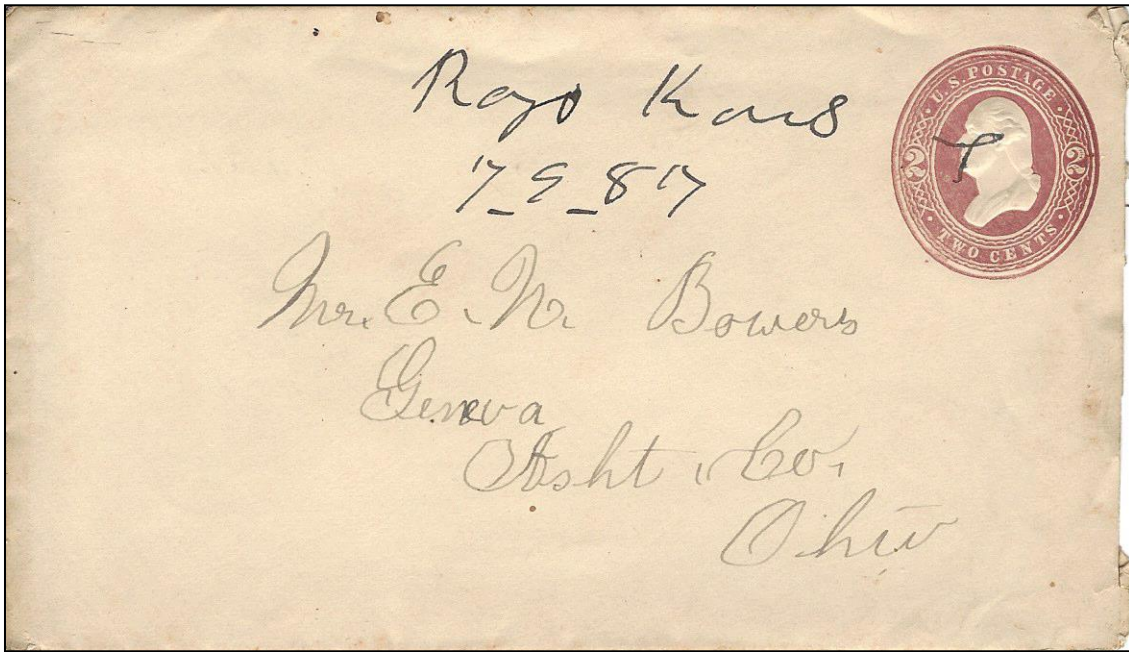 Rayo Kans
7-9-87
U.S. POSTAGE
2 2
TWO CENTS
Mr. E. W. Bowers
Geneva
Asht. Co.
Ohio